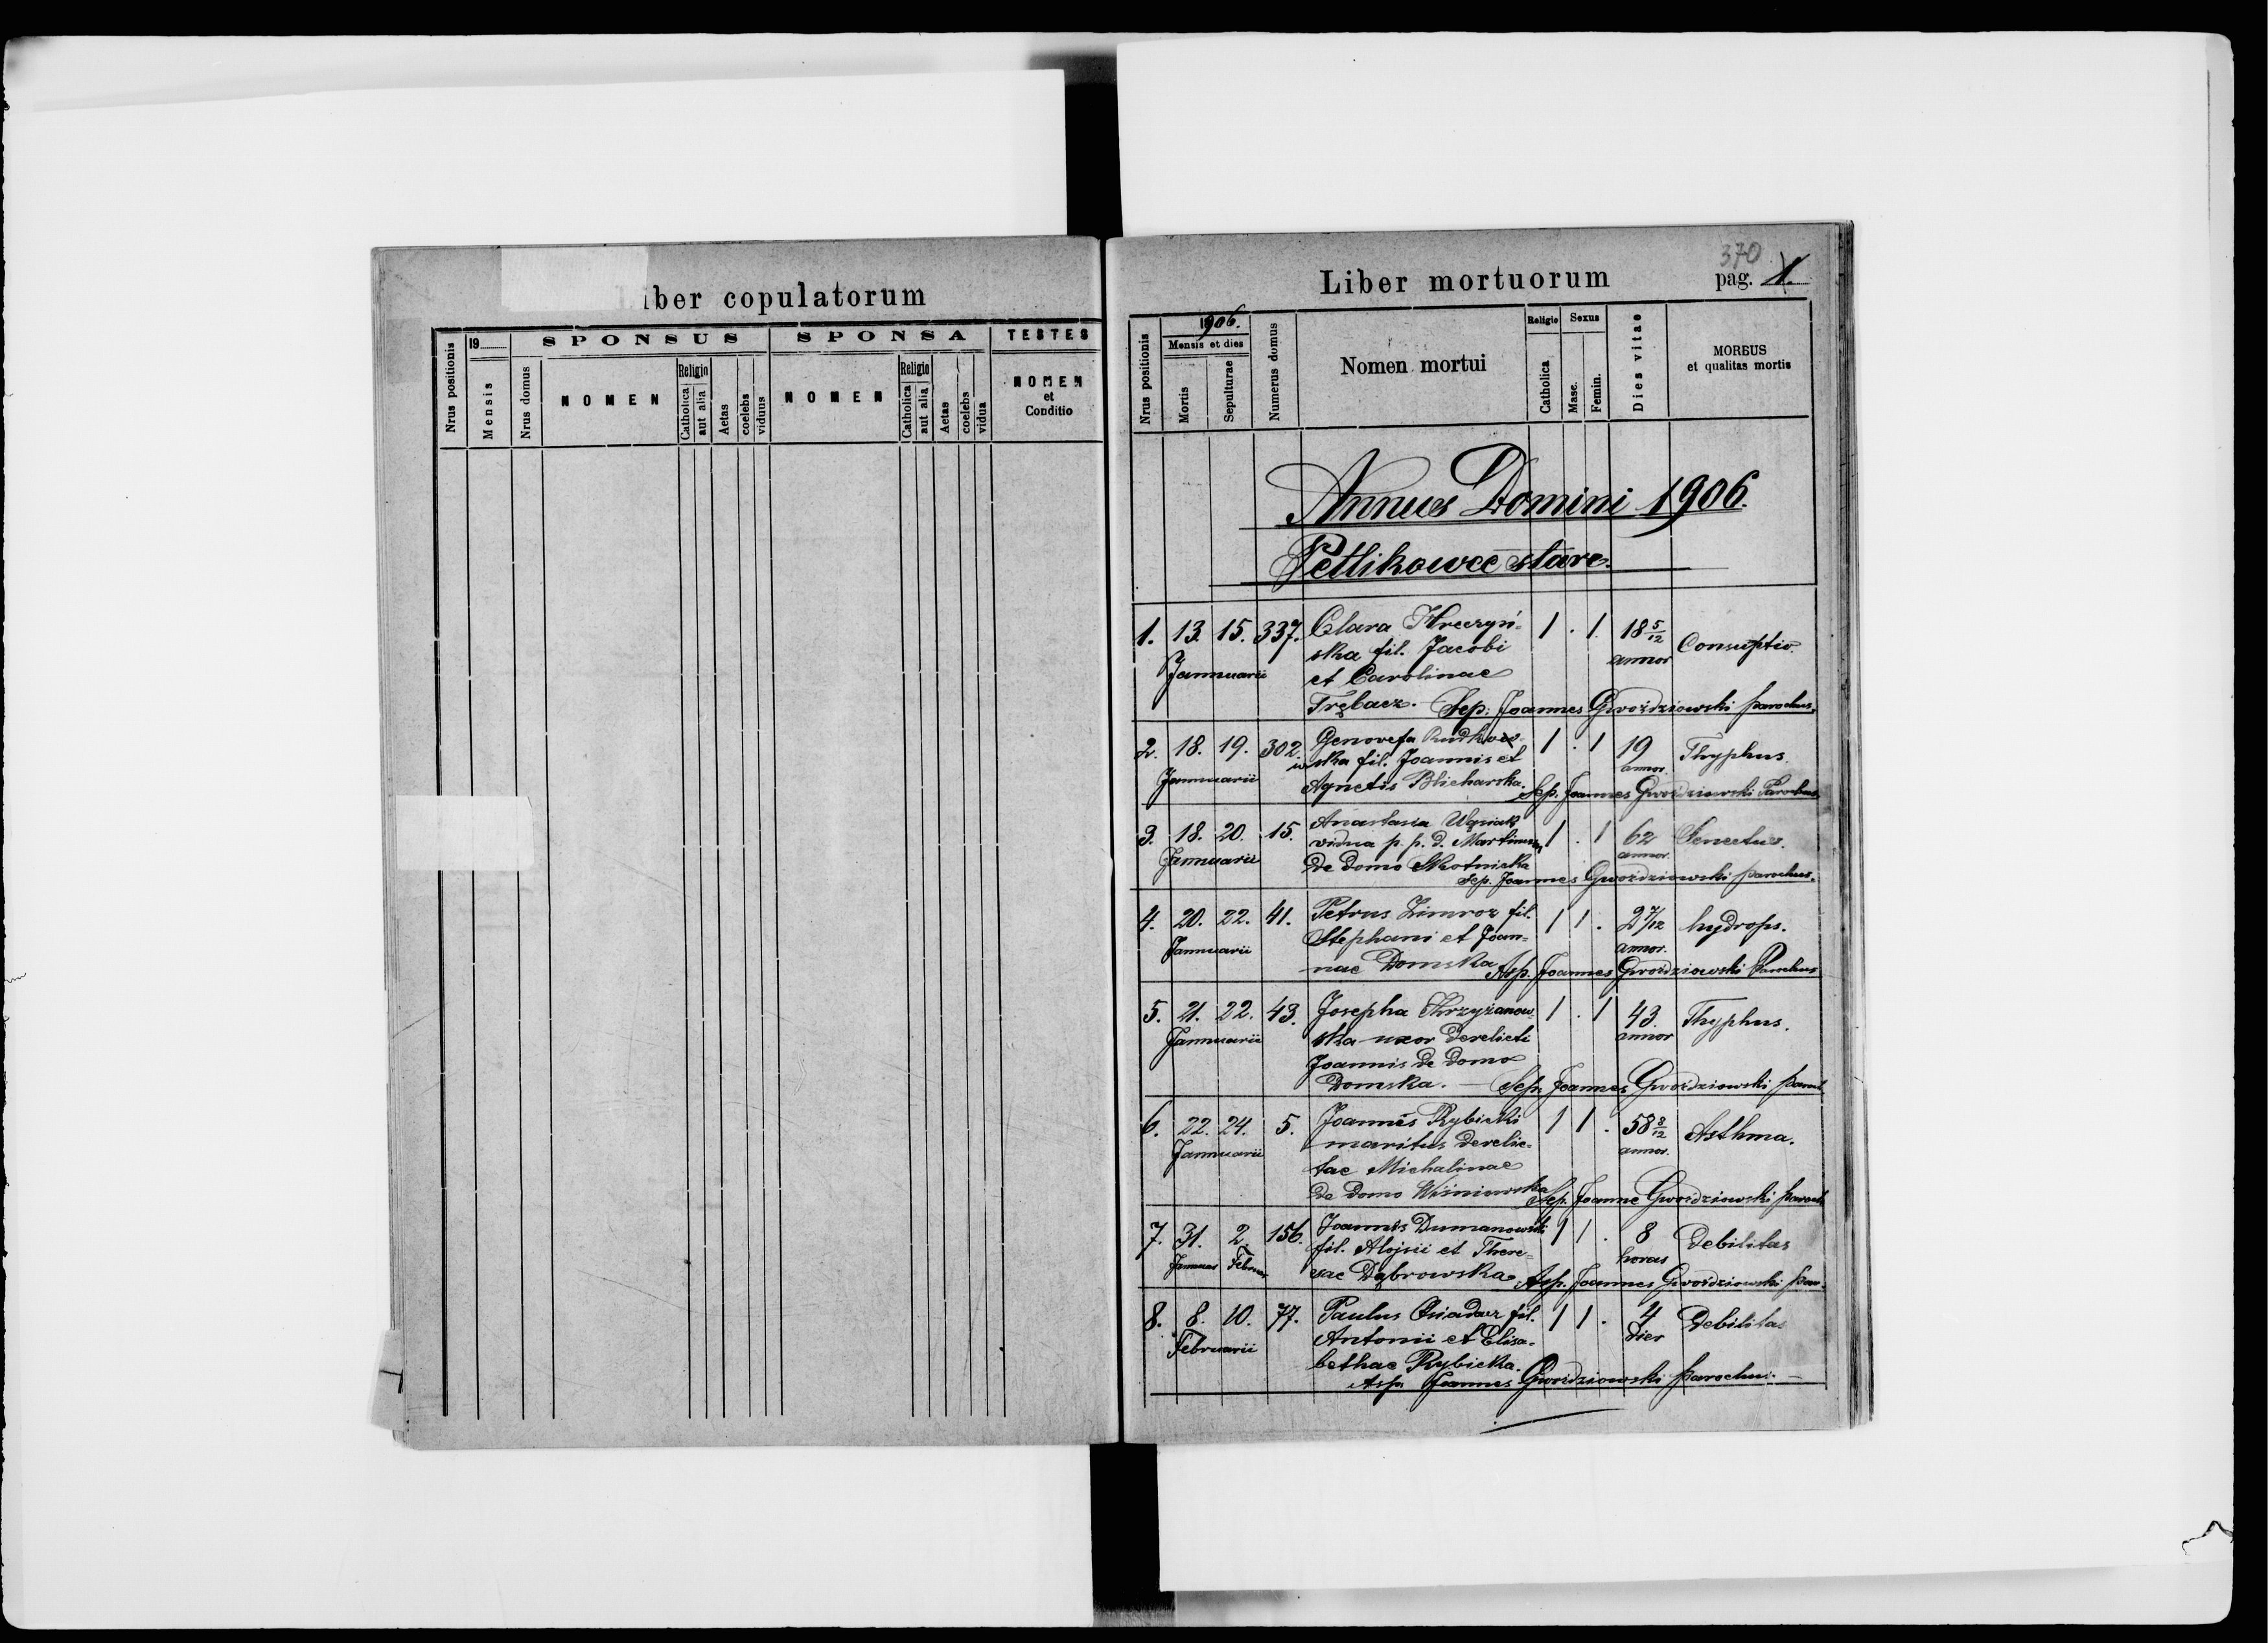 iber copulatorum
Nrus positionis
19
Mensis
SPONSUS
Nrus domus
NOMEN
Religio
Catholica
aut alia
Aetas
coelebs
viduus
SPONSA
NOMEN
Religio
Catholica
aut alia
Aetas
coelebs
vidua
TESTES
NOMEN
et
Conditio
370
Liber mortuorum pag. 1.
Nrus positionis
1906.
Mensis et dies
Mortis
Sepulturae
Numerus domus
Nomen mortui
Religio
Catholica
Sexus
Masc.
Femin.
Dies vitae
MORBUS
et qualitas mortis
Annus Domini 1906.
Petlikowce stare.
1. 13. 15. 337. Clara Hreczyń- 1 . 1. 18 5/12 Consuptio.
Jannuarii ska fil. Jacobi annor
et Carolinae
Trębacz. Sep: Joannes Gwoździowski parochus.
2. 18. 19. 302. Genovefa Rudkow- 1 . 1 19 Thyphus.
Jannuarii ska fil. Joannis et annor.
Agnetis Blicharska. Sep. Joannes Gwoździowski Parochus
3. 18. 20. 15. Anastasia 1 . 1 62 Senectus.
Jannuarii vidua p. p. d. Martinum annor.
de domo Skotnicka
Sep. Joannes Gwoździowski parochus.
4. 20. 22. 41. Petrus Zimroz fil. 1 1 . 2 7/12 hydrops.
Jannuarii Stephani et Joan- annor.
nae Domska Asp. Joannes Gwoździowski Parochus
5. 21. 22. 43. Josepha Krzyżanow- 1 . 1 43. Thyphus.
Jannuarii ska uxor derelicti annor
Joannis de domo
Domska. — Sep. Joannes Gwoździowski paroch
6. 22. 24. 5. Joannes Rybicki 1 1 . 58 8/12 Asthma.
Jannuarii maritus derelic- annor.
tae Michalinae
de domo Wiśniowska Sep. Joanne Gwoździowski paroch
7. 31. 2. 156. Joannes Dumanowski 1 1 . 8 debilitas
fil. Alojsii et There- horas
sae Dąbrowska Asp. Joannes Gwoździowski par.
8. 8. 10. 77. Paulus Osiadacz fil. 1 1 . 4 debilitas
Februarii Antonii et Elisa- dier
bethae Rybicka.
Asp. Joannes Gwoździowski parochus. —